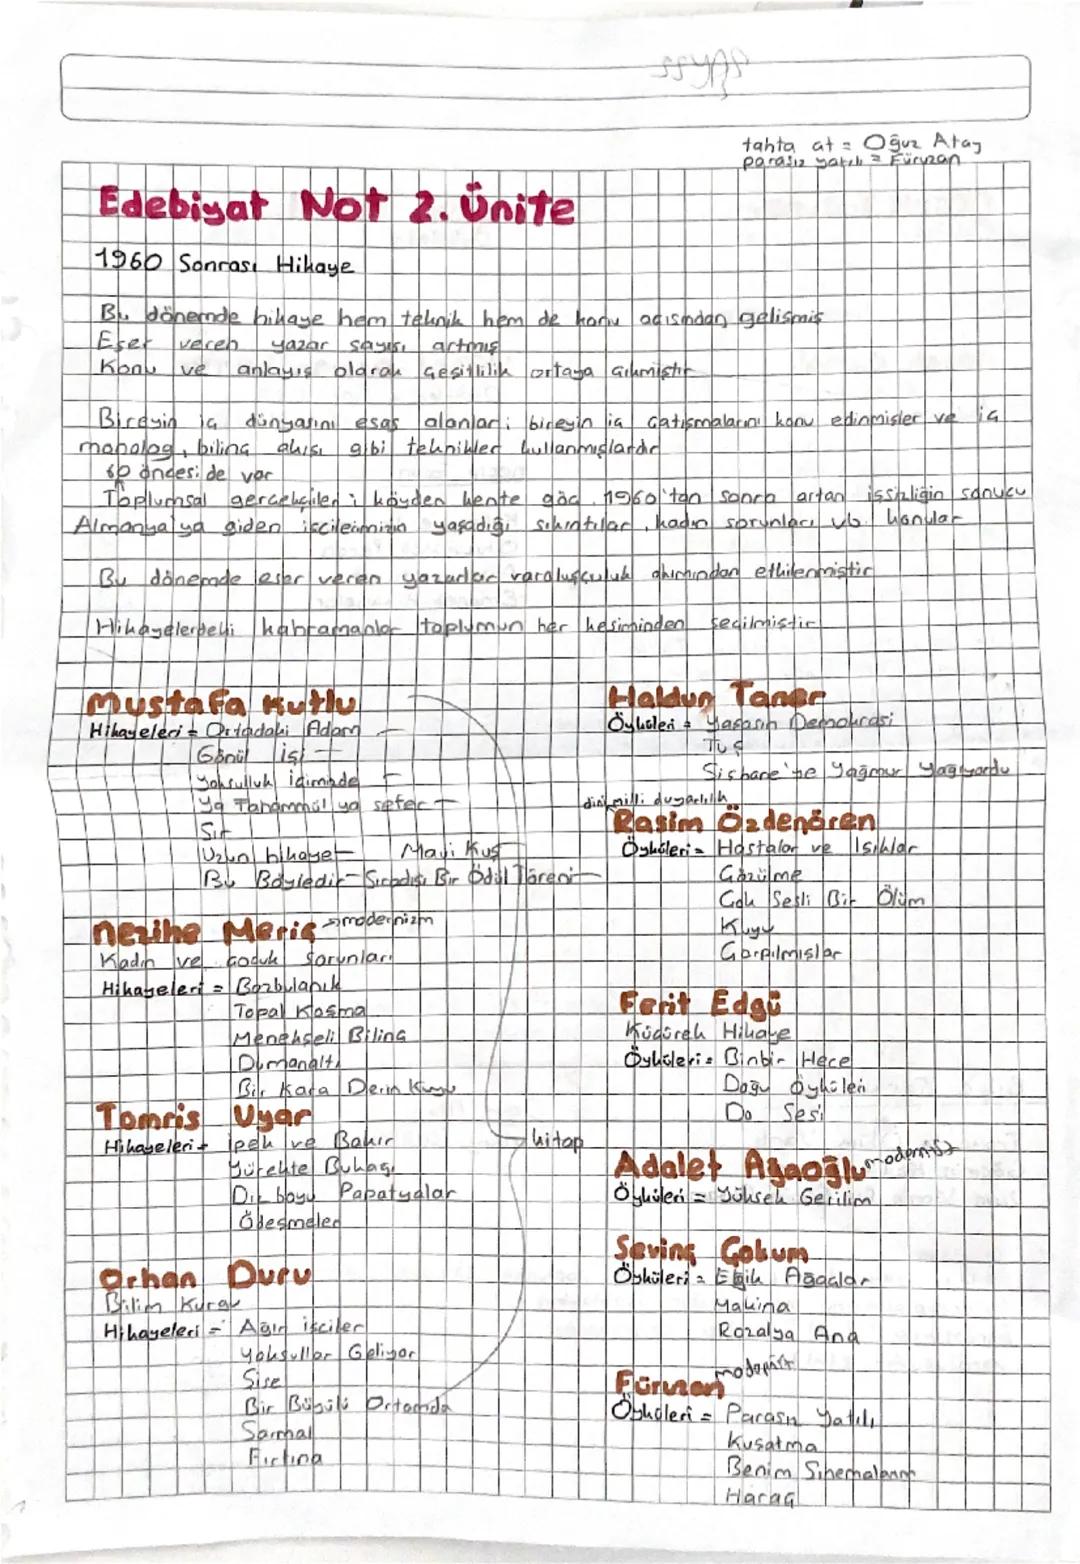 tahta at = Oğuz Atay
parasız yatılı = Füruzan
Edebiyat Not 2. Ünite
1960 Sonrası Hikaye
Bu dönemde hikaye hem teknik hem de konu açısından gelişmiş
Eser veren yazar sayısı artmış
Konu ve anlayış olarak çeşitlilik ortaya çıkmıştır
Bireyin iç dünyasını esas alanlar: bireyin iç çatışmalarını konu edinmişler ve iç
monolog, bilinç akışı gibi teknikler kullanmışlardır
60 öncesi de var
Toplumsal gerçekçiler: köyden kente göç 1960'tan sonra artan işsizliğin sonucu
Almanya'ya giden işçileimizin yaşadığı sıkıntılar, kadın sorunları vb. konular
Bu dönemde eser veren yazarlar varoluşçuluk akımından etkilenmiştir
Hikayelerdeki kahramanlar toplumun her kesiminden seçilmiştir
Mustafa Kutlu
Hikayeleri = Ortadaki Adam
Gönül işi
Yoksulluk içimizde
Ya Tahammül ya sefer
Sır
Uzun hikaye Mavi Kuş
Bu Böyledir Sıradışı Bir Ödül Töreni
Nezihe Meriç → modernizm
Kadın ve çocuk sorunları
Hikayeleri = Bozbulanık
Topal Koşma
Menekşeli Bilinç
Dumanaltı
Bir Kara Derin Kuyu
Tomris Uyar
Hikayeleri = İpek ve Bakır
Yürekte Bukağı
Diz boyu Papatyalar
Ödeşmeler
Orhan Duru
Bilim Kurgu
Hikayeleri = Ağır işçiler
Yoksullar Geliyor
Şişe
Bir Büyülü Ortamda
Sarmal
Fırtına
kitap
Haldun Taner
Öyküleri = Yaşasın Demokrasi
Tuş
Şişhane'ye Yağmur Yağıyordu
dini milli duyarlılık
Rasim Özdenören
Öyküleri = Hastalar ve Işıklar
Çözülme
Çok Sesli Bir Ölüm
Kuyu
Çarpılmışlar
Ferit Edgü
Küçürek Hikaye
Öyküleri = Binbir Hece
Doğu Öyküleri
Do Sesi
Adalet Ağaoğlu modernist
Öyküleri = Yüksek Gerilim
Sevinç Çokum
Öyküleri = Eğik Ağaçlar
Makina
Rozalya Ana
Füruzan modernist
Öyküleri = Parasız Yatılı
Kuşatma
Benim Sinemalarım
Haraç